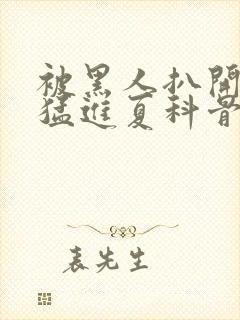 被黑人扒開
猛進夏科普
表先生